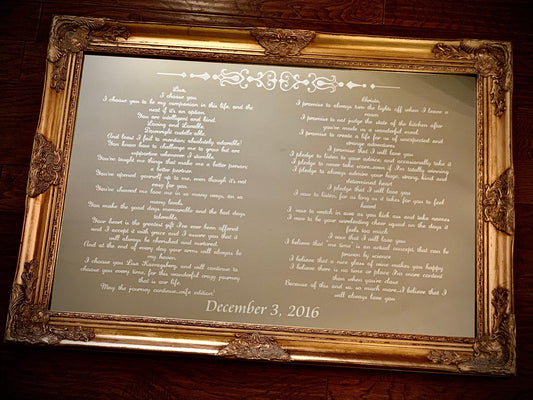 Lisa,
I choose you
I choose you to be my companion in this life, and the
next if it's an option.
You are intelligent and kind.
Loving and Lovable
Downright cuddle able
And least I fail to mention absolutely adorable!
You know how to challenge me to grow but are
supportive whenever I stumble.
You've taught me things that make me a better person;
a better partner
You've opened yourself up to me, even though it's not
easy for you.
You've showed me love in so many ways, on so
many levels.
You make the good days memorable and the bad days
tolerable.
Your heart is the greatest gift I've ever been offered
and I accept it with grace and I assure you that it
will always be cherished and nurtured.
And at the end of every day your arms will always be
my haven.
I choose you Lisa and will continue to
choose you every time, for this wonderful crazy journey
that is our life.
May the journey continue...wife edition!
Christa,
I promise to always turn the lights off when I leave a
room
I promise to not judge the state of the kitchen after
you've made a wonderful meal
I promise to create a life for us of unexpected and
strange adventures,
I promise that I will love you
I pledge to listen to your advice, and occasionally take it
I pledge to never take score even if I'm totally winning
I pledge to always admire your huge, strong, kind and
determined heart
I pledge that I will love you
I vow to listen, for as long as it takes for you to feel
heard
I vow to watch in awe as you kick ass and take names
I vow to be your unrelenting cheer squad on the days it
feels too much
I vow that I will love you
I believe that "me time" is an actual concept that can be
proven by science
I believe that a nice glass of wine makes you happy
I believe there is no time or place I'm more content
than when you're close
Because of this and so so much more...I believe that I
will always love you
December 3, 2016